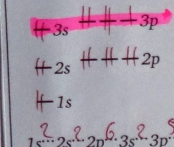 3s 3p
2s 2p
1s
1s² 2s² 2p⁶ 3s² 3p⁵